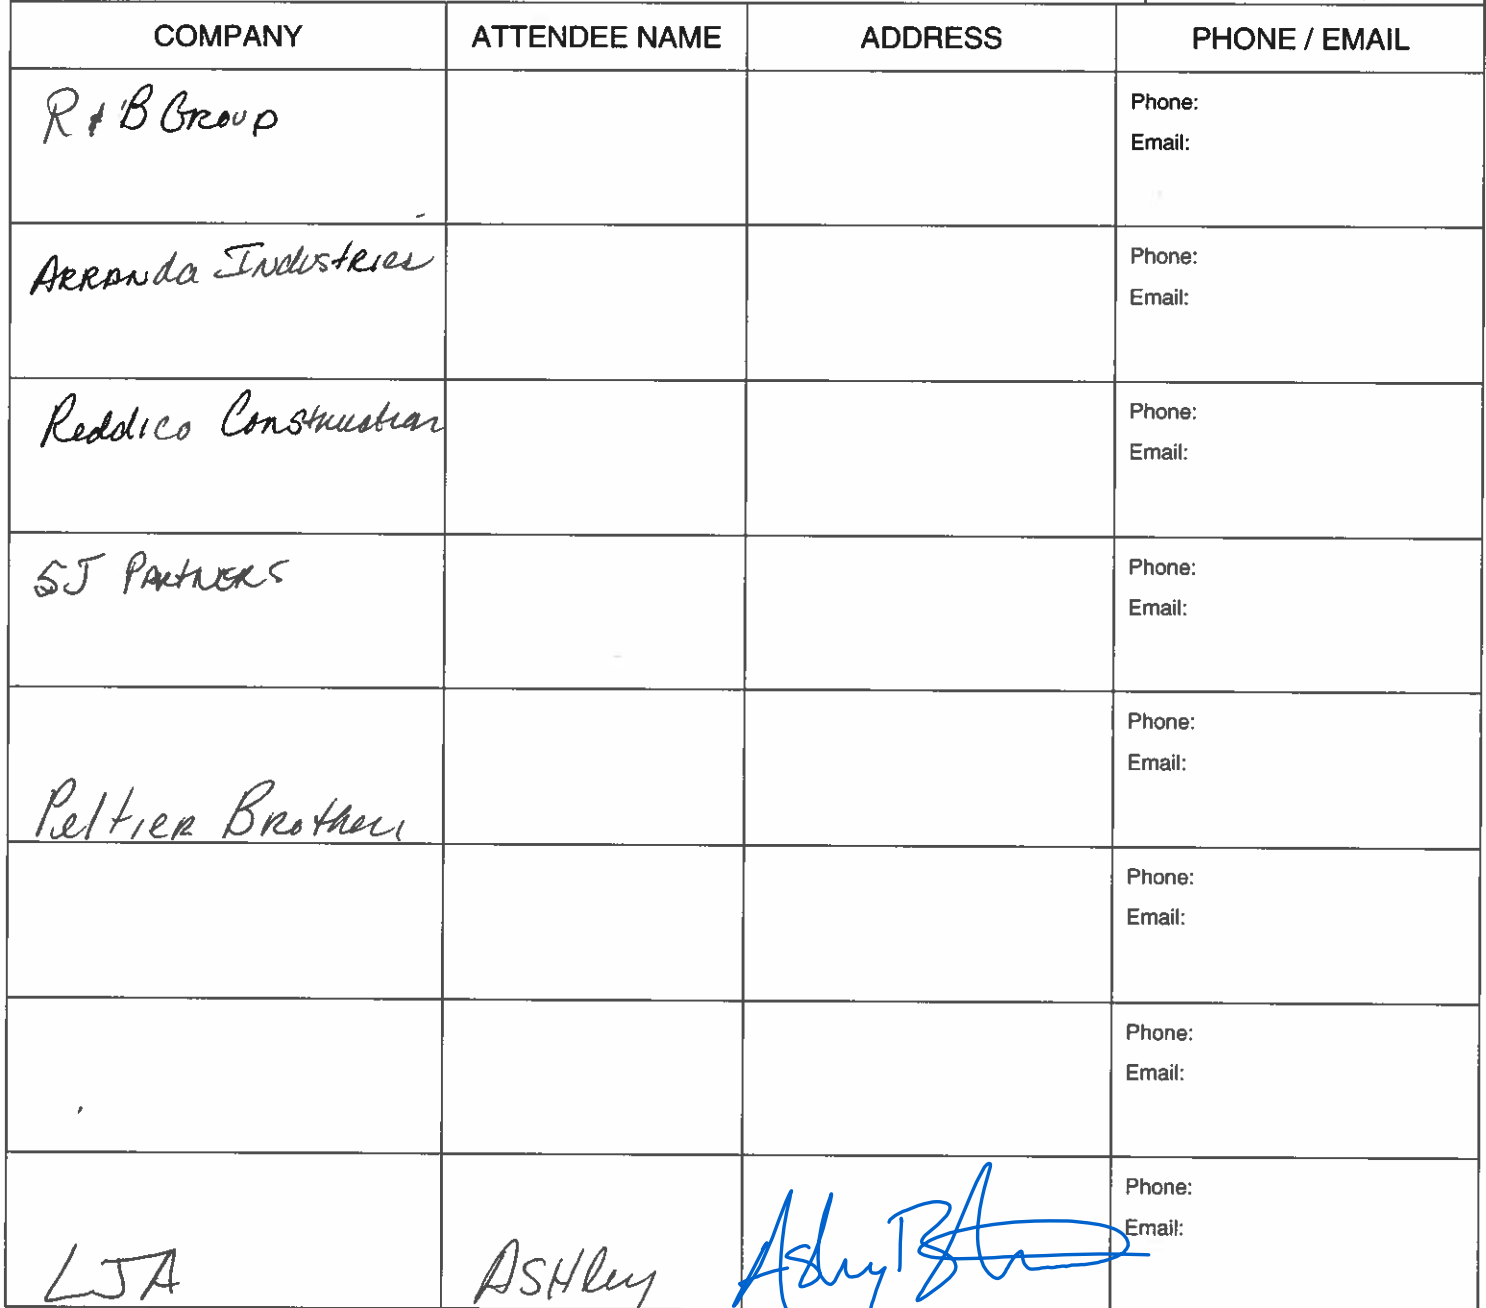 COMPANY ATTENDEE NAME ADDRESS PHONE / EMAIL
R & B Group
Phone:
Email:
Arranda Industries
Phone:
Email:
Reddico Construction
Phone:
Email:
SJ Partners
Phone:
Email:
Phone:
Email:
Peltier Brothers
Phone:
Email:
Phone:
Email:
Phone:
Email:
LJA ASHley Ashley